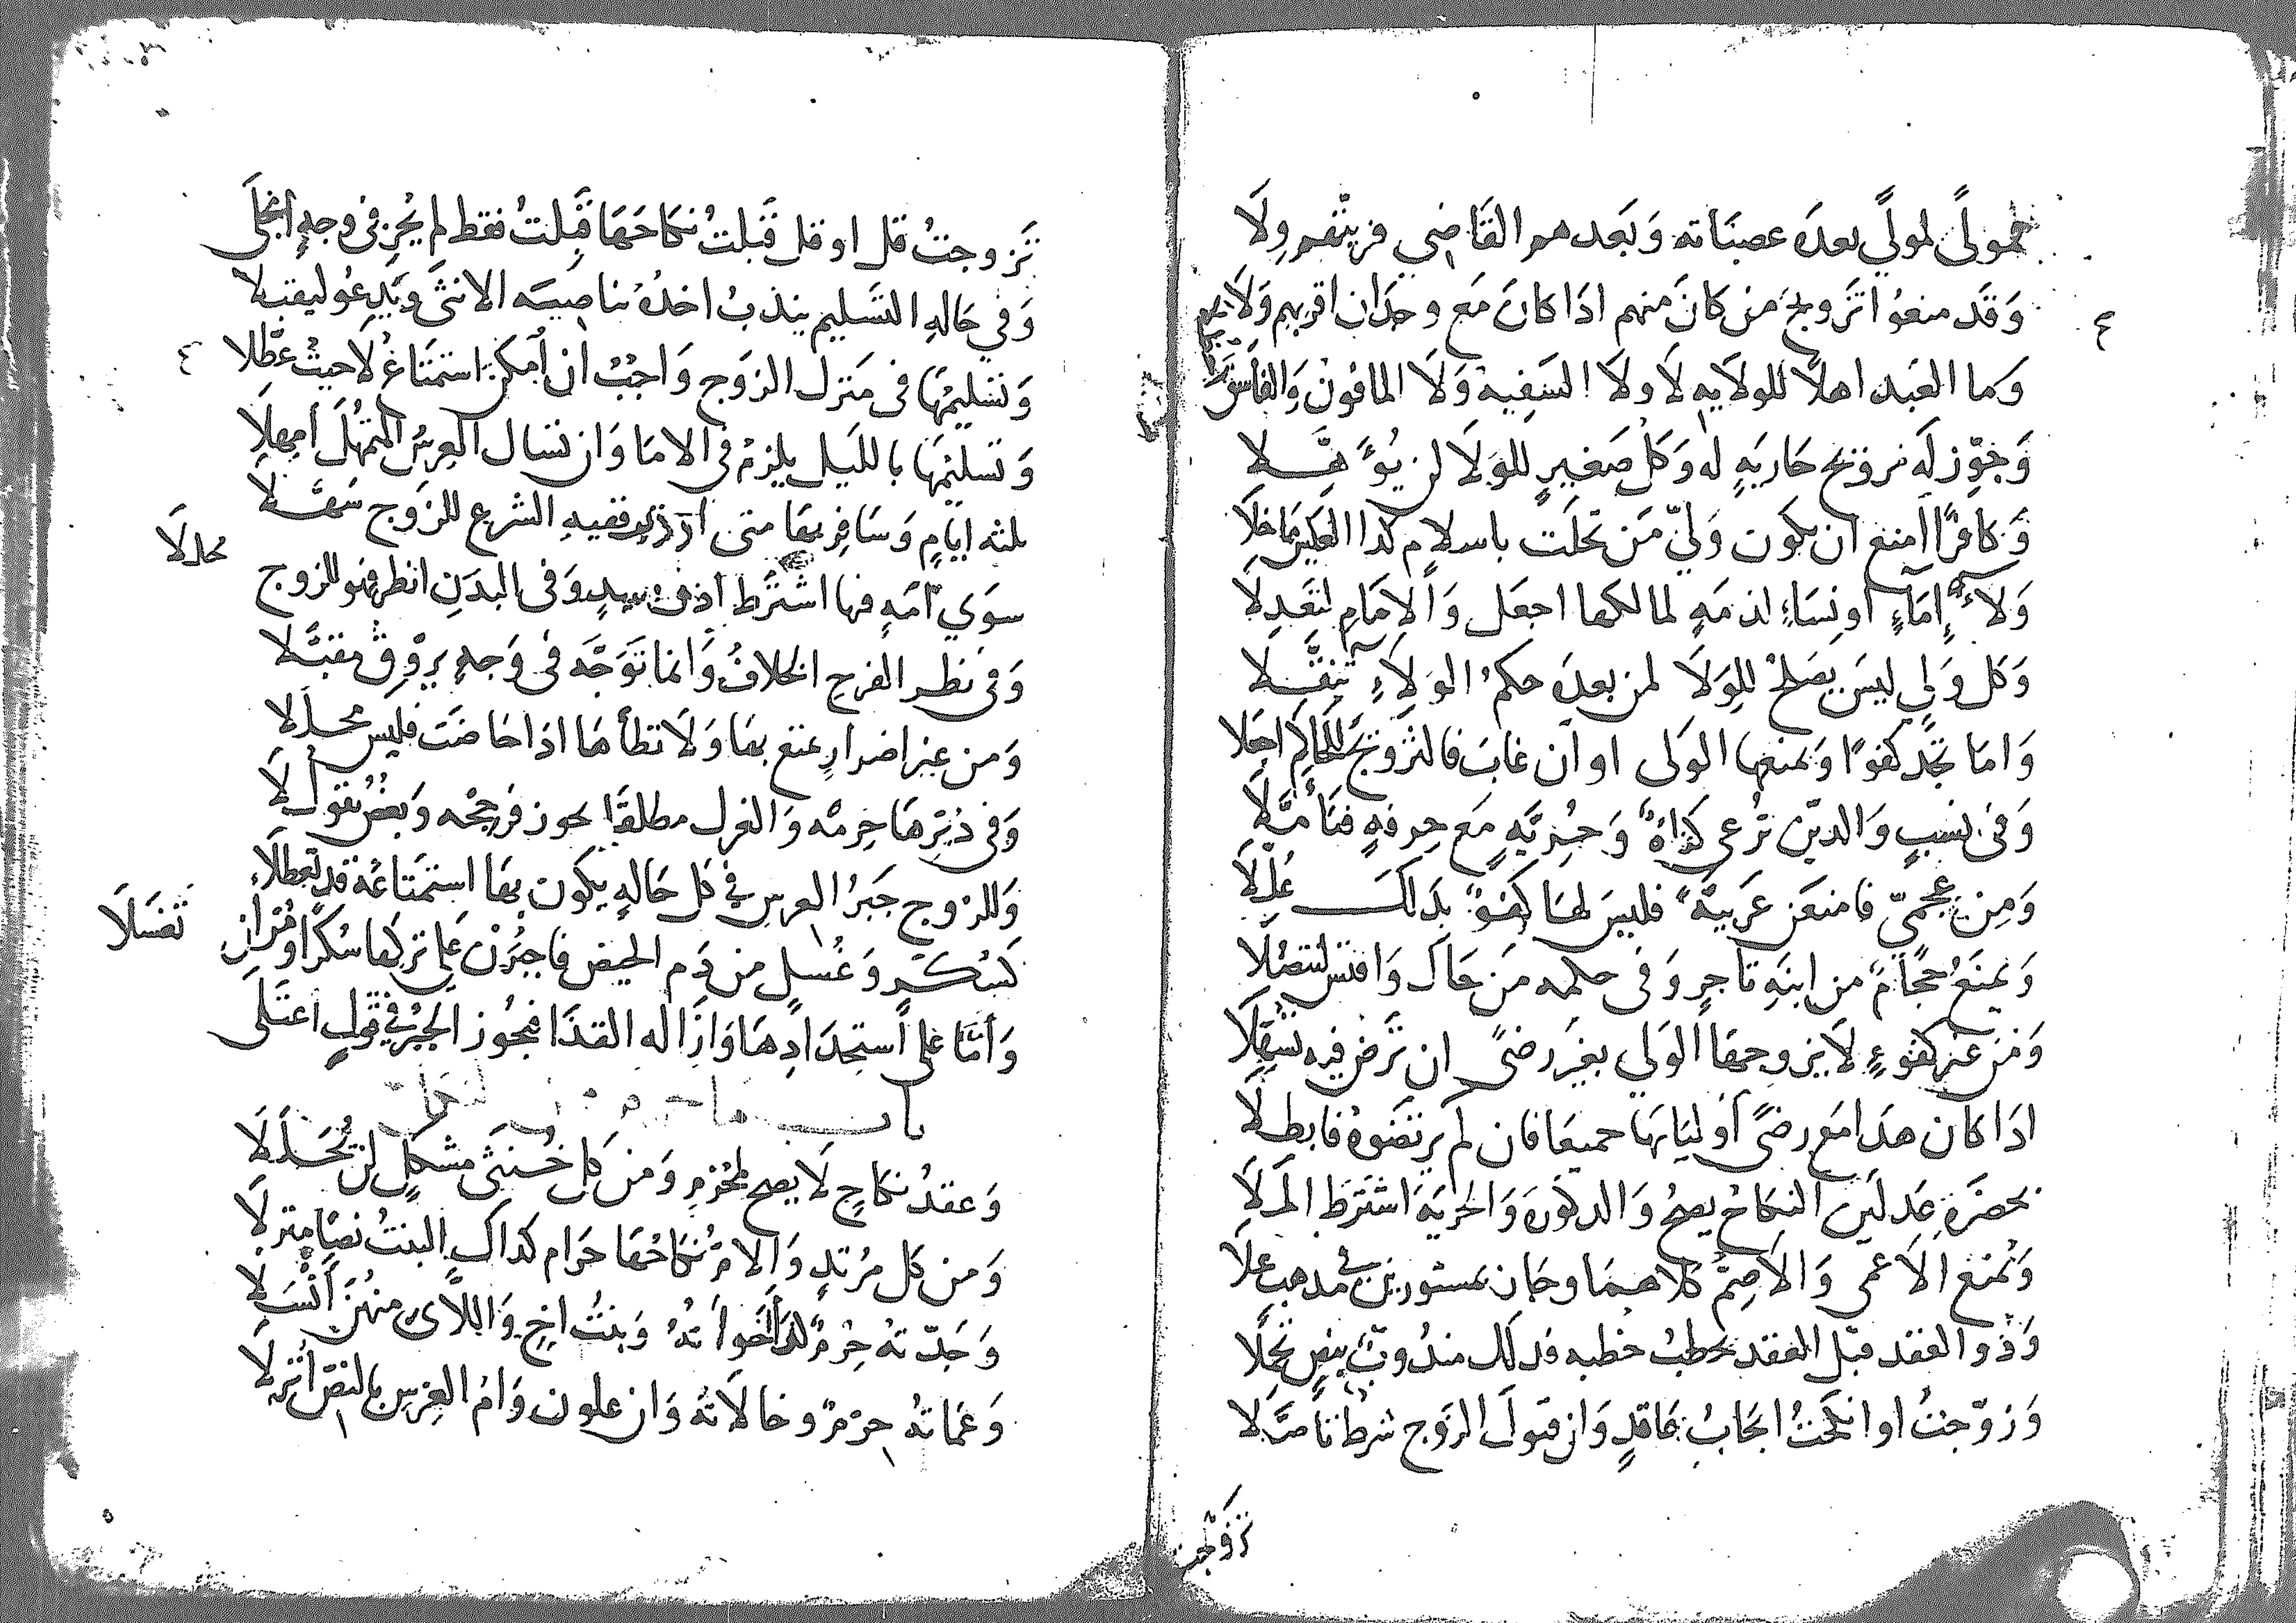 فمولًى لمولًي بعده عصباته وَبَعدهم القَاضِي فرتبهم وِلَا
وَقَد منعُوا تَزويج مَن كَانَ منهم اذَا كانَ مَع وحدان اقربهم وَلَا
وَما العَبد اهلًا للولَايه لَا ولَا السَفِيه وَلَا المافون وَالفاسق
وَجوّز لَه تزويج جَاريَهٍ له وَكل صَغيرٍ للوَلَا لن يُؤهَّلا
وَكافرًا امنع ان يكون وَليّ مَن تحلت باسلام كذا العكس مَا خلَا
وَلَا إمَاءٍ او نِسَاءِ اذمَهٍ لمالكها اجعل وَالامَامِ لتَعدلَا
وَكل وَلي ليسَ يَصلح للوِلَا لمن بعدَه حكم الوِلَاءِ تنقَّلا
وَامَا تجد كفوًا وَيمنعها الوَلى او ان غابَ فالتزويجَ للحَاكم اجعَلا
وَفى نسبٍ وَالدين تُرعى كفَاءَة وَحُرِّيَّهٍ مَع حِرفهٍ فتَأمَّلَا
وَمِن عجميّ فامنعَن عَربيَّهً فليسَ لهَا كفوًا بذلك عُلِّلَا
وَيمنَع حجَّامٌ من ابنَهِ تَاجرٍ وَفى حكمه مَن حَاك وَافتش لتفضُلَا
وَمَن غير كفوءٍ لَا يزوجها الوَلى بغير رضًى ان تَرضَ فيه تسَهّلَا
اذَا كان هذَا مَع رضَى اوليَايهَا جميعًا فان لم يرتضَوهُ فابطلَا
بحضرَة عَدلَين النكاح يصح وَالذكورَه وَالحريَه اشترط المَلَا
وَيمنَع الاعمى وَالاصم كلاهما وجَاز بمستورين فى مذهب عَلَا
وَذو العقد قبل العقد يخطب خطبه فذلك مندُوبٌ بنصٍ تجمَّلا
وَزوَّجتُ او انكحتُ ايجَابُ عَاقدٍ وَان قبولَ الزَوج شرطًا تاصَّلا
تزوّجت
تَزوجتُ قل او قل قَبلتُ نكاحَهَا قَبلتُ فقط لم يُجزِ فى وجهٍ انجلَى
وَفي حَالهِ التَسليم يندبُ اخذهُ بناصيَه الانثَى وَيَدعُو ليقبلا
وَتَسليمهَا فى منزل الزَوج وَاجبٌ ان أمكن استمتَاعُ لَا حيثُ عطّلا
وَتسليمهَا بالليَل يلزمُ فى الامَا وَان تسَال العِرسُ التمهُّلَ أمهلَا
ثلثه ايامٍ وَسَافِر بهَا متى اردتَ فقيه الشرع للزَوج سَهَّلَا
سوَي أمَهٍ فيها اشترَط اذن سيدٍ وَفى البدَنِ انظر فهو للزوج
محللَا
وَفى نظر الفرج الخلافُ وَانما تَوجَّه فى وَجهٍ يروق مقبَّلا
وَمن غير اضرارٍ تمتع بهَا وَلَا تطأهَا اذا حَاضَت فليس محللا
وَفى دُبرهَا حرمه وَالعزل مطلقًا يجوز فرجّحه وَبعضٌ يقول لَا
وَللزَوج جَبرُ العرسِ فى كل حَالهٍ يكون بهَا استمتَاعُه قد تعطلَا
كسُكرٍ وَغُسلٍ من دَم الحيض فاجبُرن عَلى تركهَا سُكرًا وَمُرْ ان
تغسَلَا
وَأمَّا على استِحدَادِهَا وَازَاله القذَا فيجُوز الجبرُ فى قولٍ اعتَلَى
باب ما حرم من النكاح
وَعقدُ نكاحٍ لَا يصح لمحرمٍ وَمن كل خُنثَى مشكلٍ لن يُحَلَّلَا
وَمن كل مُرتدٍ وَالامُّ نكاحُهَا حَرام كذاك البنتُ نصًا منزلَا
وَجَدّته حِرمٌ كذا أخَواتهُ وَبنتُ اخٍ وَاللَّاى منهُنَ أنسَلا
وَعَمَاتهُ حِرمٌ وخالَاتهُ وَان علون وَامُ العِرسِ بالنصّ أنزلَا